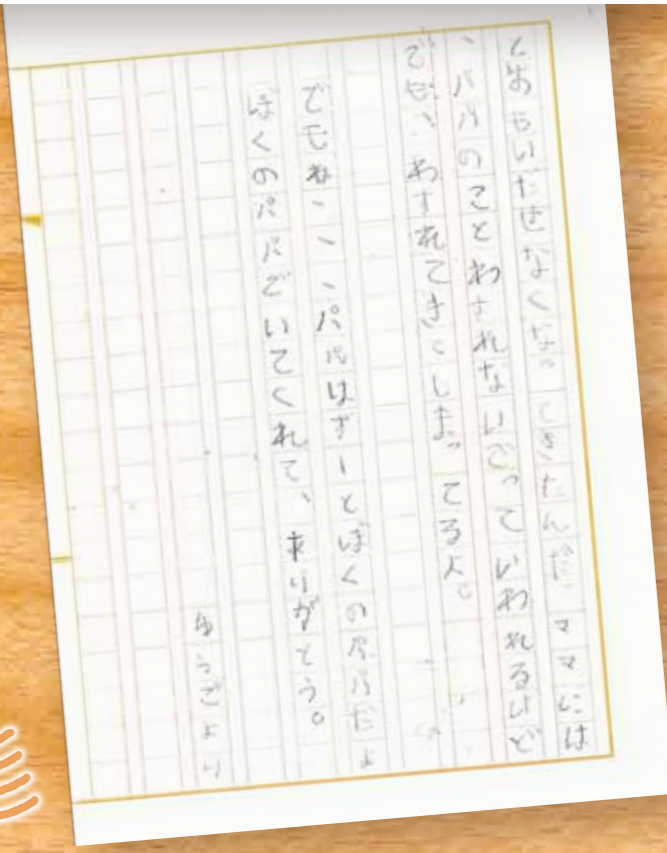 とおもいだせなくなってきたんだ ママには
、パパのことわすれないでっていわれるけど
でも、わすれてきてしまってるよ。
でもね、、、パパはずーとぼくのパパだよ
ぼくのパパでいてくれて、ありがとう。
ゆうごより